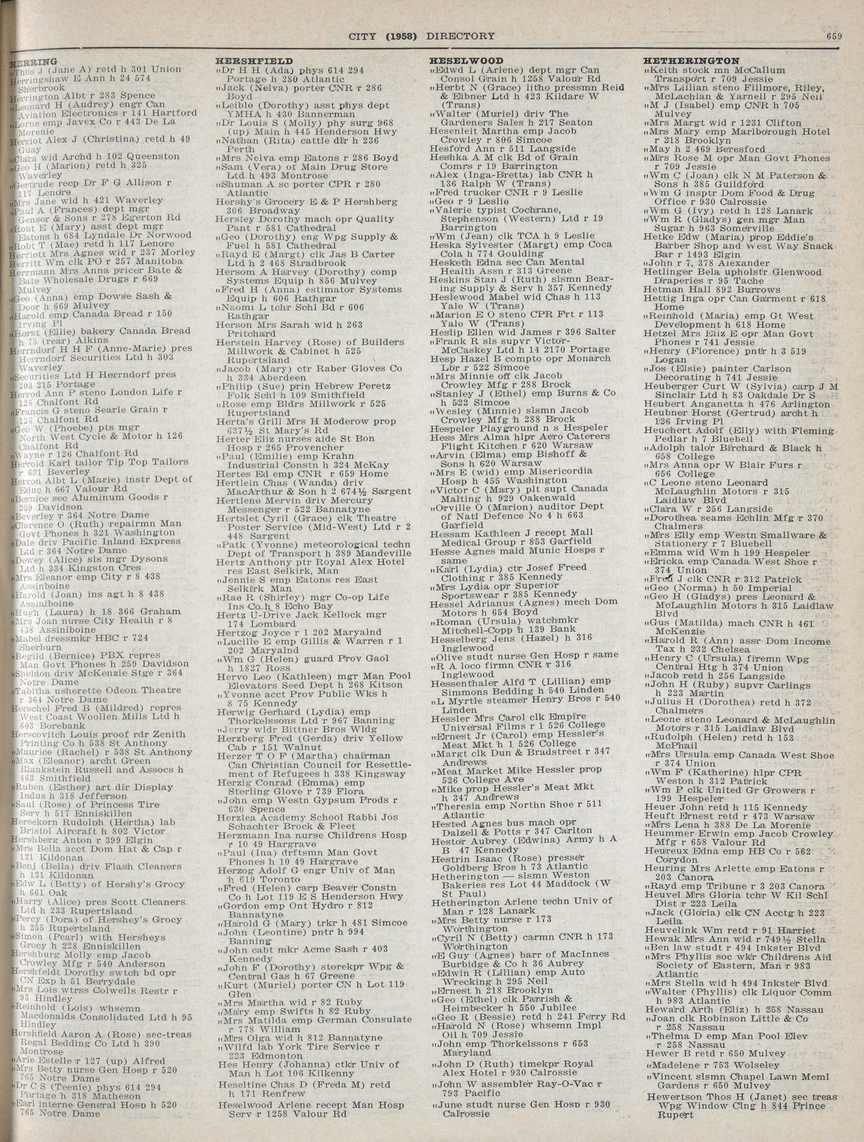 CITY (1958) DIRECTORY
659
HERRING
„Thos J (Jane A) retd h 301 Union
Herringshaw E Ann h 24 574
Sherbrook
Herrington Albt r 283 Spence
„Leonard H (Audrey) engr Can
Aviation Electronics r 141 Hartford
„Lorne emp Javex Co r 443 De La
Morenie
Herriot Alex J (Christina) retd h 49
Guay
„Clara wid Archd h 102 Queenston
„Geo H (Marion) retd h 325
Waverley
„Gertrude recp Dr F G Allison r
117 Lenore
„Mrs Jane wid h 421 Waverley
„Paul A (Frances) dept mgr
Genser & Sons r 278 Egerton Rd
„Root E (Mary) asst dept mgr
Eatons h 684 Lyndale Dr Norwood
„Robt T (Mae) retd h 117 Lenore
Herriott Mrs Agnes wid r 237 Morley
Herritt Wm clk PO r 257 Manitoba
Herrmann Mrs Anna pricer Bate &
Bate Wholesale Drugs r 669
Mulvey
„Geo (Anna) emp Dowse Sash &
Door h 669 Mulvey
„Harold emp Canada Bread r 150
Irving Pl
„Horst (Ellie) bakery Canada Bread
h 75 (rear) Aikins
Herrndorf H H F (Anne-Marie) pres
Herrndorf Securities Ltd h 303
Waverley
„Securities Ltd H Herrndorf pres
203 215 Portage
Herrod Ann P steno London Life r
126 Chalfont Rd
„Francis G steno Searle Grain r
126 Chalfont Rd
„Geo W (Phoebe) pts mgr
North West Cycle & Motor h 126
Chalfont Rd
„Wayne r 126 Chalfont Rd
Herrold Karl tailor Tip Top Tailors
r 631 Beverley
Herron Albt L (Marie) instr Dept of
Educ h 667 Valour Rd
„Bernice sec Aluminum Goods r
259 Davidson
„Beverley r 364 Notre Dame
„Clarence O (Ruth) repairmn Man
Govt Phones h 321 Washington
„Dale driv Pacific Inland Express
Ltd r 364 Notre Dame
„Dewey (Alice) sls mgr Dysons
Ltd h 334 Kingston Cres
„Mrs Eleanor emp City r 8 438
Assiniboine
„Harold (Joan) ins agt h 8 438
Assiniboine
„Hugh (Laura) h 18 366 Graham
„Mrs Joan nurse City Health r 8
438 Assiniboine
„Mabel dressmkr HBC r 724
Sherburn
„Regild (Bernice) PBX repres
Man Govt Phones h 259 Davidson
„Sheldon driv McKenzie Stge r 364
Notre Dame
„Tabitha usherette Odeon Theatre
r 364 Notre Dame
Herschel Fred B (Mildred) repres
West Coast Woollen Mills Ltd h
603 Borebank
Herscovitch Louis proof rdr Zenith
Printing Co h 538 St Anthony
„Maurice (Rachel) r 538 St Anthony
„Max (Eleanor) archt Green
Blankstein Russell and Assocs h
463 Smithfield
„Ruben (Esther) art dir Display
Indus h 318 Jefferson
„Saul (Rose) of Princess Tire
Serv h 517 Enniskillen
Hersekorn Rudolph (Hertha) lab
Bristol Aircraft h 802 Victor
Hershberg Anton r 399 Elgin
„Mrs Bella acct Dom Hat & Cap r
131 Kildonan
„Benj (Bella) driv Flash Cleaners
h 131 Kildonan
„Edw L (Betty) of Hershy's Grocy
h 661 Oak
„Harry (Alice) pres Scott Cleaners
Ltd h 233 Rupertsland
„Percy (Dora) of Hershey's Grocy
h 255 Rupertsland
„Simon (Pearl) with Hersheys
Grocy h 228 Enniskillen
Hershburg Molly emp Jacob
Crowley Mfg r 540 Anderson
Hershfeldt Dorothy swtch bd opr
CN Exp h 51 Berrydale
„Mrs Lois wtrss Colwells Restr r
95 Hindley
„Reinhold (Lois) whsemn
Macdonalds Consolidated Ltd h 95
Hindley
Hershfield Aaron A (Rose) sec-treas
Regal Bedding Co Ltd h 390
Montrose
„Arie Estelle r 127 (up) Alfred
„Mrs Betty nurse Gen Hosp r 520
765 Notre Dame
„Dr C S (Teenie) phys 614 294
Portage h 318 Matheson
„Earl interne General Hosp h 520
765 Notre Dame
HERSHFIELD
„Dr H H (Ada) phys 614 294
Portage h 280 Atlantic
„Jack (Nelva) porter CNR r 286
Boyd
„Leible (Dorothy) asst phys dept
YMHA h 430 Bannerman
„Dr Louis S (Molly) phy surg 968
(up) Main h 445 Henderson Hwy
„Nathan (Rita) cattle dlr h 236
Perth
„Mrs Nelva emp Eatons r 286 Boyd
„Sam (Vera) of Main Drug Store
Ltd h 493 Montrose
„Shuman A sc porter CPR r 280
Atlantic
Hershy's Grocery E & P Hershberg
306 Broadway
Hersley Dorothy mach opr Quality
Pant r 581 Cathedral
„Geo (Dorothy) eng Wpg Supply &
Fuel h 581 Cathedral
„Rayd E (Margt) clk Jas B Carter
Ltd h 2 468 Stradbrook
Hersom A Harvey (Dorothy) comp
Systems Equip h 856 Mulvey
„Fred H (Anna) estimator Systems
Equip h 606 Rathgar
„Naomi L tchr Schl Bd r 606
Rathgar
Herson Mrs Sarah wid h 263
Pritchard
Herstein Harvey (Rose) of Builders
Millwork & Cabinet h 525
Rupertsland
„Jacob (Mary) ctr Raber Gloves Co
h 334 Aberdeen
„Philip (Sue) prin Hebrew Peretz
Folk Schl h 109 Smithfield
„Rose emp Bldrs Millwork r 525
Rupertsland
Herta's Grill Mrs H Moderow prop
637½ St Mary's Rd
Herter Eliz nurses aide St Bon
Hosp r 265 Provencher
„Paul (Emilie) emp Krahn
Industrial Constn h 324 McKay
Hertes Ed emp CNR r 659 Home
Hertlein Chas (Wanda) driv
MacArthur & Son h 2 674½ Sargent
Hertleno Mervin driv Mercury
Messenger r 522 Bannatyne
Hertslet Cyril (Grace) clk Theatre
Poster Service (Mid-West) Ltd r 2
448 Sargent
„Patk (Yvonne) meteorological techn
Dept of Transport h 389 Mandeville
Hertz Anthony ptr Royal Alex Hotel
res East Selkirk, Man
„Jennie S emp Eatons res East
Selkirk Man
„Rae R (Shirley) mgr Co-op Life
Ins Co h 8 Echo Bay
Hertz U-Drive Jack Kellock mgr
174 Lombard
Hertzog Joyce r 1 202 Maryalnd
„Lucille E emp Gillis & Warren r 1
202 Maryalnd
„Wm G (Helen) guard Prov Gaol
h 1827 Ross
Hervo Leo (Kathleen) mgr Man Pool
Elevators Seed Dept h 268 Kitson
„Yvonne acct Prov Public Wks h
8 75 Kennedy
Herwig Gerhard (Lydia) emp
Thorkelssons Ltd r 967 Banning
„Jerry wldr Bittner Bros Wldg
Herzberg Fred (Gerda) driv Yellow
Cab r 151 Walnut
Herzer T O F (Martha) chairman
Can Christian Council for Resettle-
ment of Refugees h 338 Kingsway
Herzig Conrad (Emma) emp
Sterling Glove r 739 Flora
„John emp Westn Gypsum Prods r
630 Spence
Herzlea Academy School Rabbi Jos
Schachter Brock & Fleet
Herzmann Ina nurse Childrens Hosp
r 10 49 Hargrave
„Paul (Ina) drftsmn Man Govt
Phones h 10 49 Hargrave
Herzog Adolf G engr Univ of Man
h 619 Toronto
„Fred (Helen) carp Beaver Constn
Co h Lot 119 E S Henderson Hwy
„Gordon emp Ont Hydro r 812
Bannatyne
„Harold G (Mary) trkr h 481 Simcoe
„John (Leontine) pntr h 994
Banning
„John cabt mkr Acme Sash r 403
Kennedy
„John F (Dorothy) storekpr Wpg &
Central Gas h 67 Greene
„Kurt (Muriel) porter CN h Lot 119
Glen
„Mrs Martha wid r 82 Ruby
„Mary emp Swifts h 82 Ruby
„Mrs Matilda emp German Consulate
r 778 William
„Mrs Olga wid h 812 Bannatyne
„Wilfd lab York Tire Service r
223 Edmonton
Hes Henry (Johanna) ctkr Univ of
Man h Lot 106 Kilkenny
Heseltine Chas D (Freda M) retd
h 171 Renfrew
Heselwood Arlene recept Man Hosp
Serv r 1258 Valour Rd
HESELWOOD
„Edwd L (Arlene) dept mgr Can
Consol Grain h 1258 Valour Rd
„Herbt N (Grace) litho pressmn Reid
& Eibner Ltd h 423 Kildare W
(Trans)
„Walter (Muriel) driv The
Gardeners Sales h 217 Seaton
Hesenleit Martha emp Jacob
Crowley r 806 Simcoe
Hesford Ann r 511 Langside
Heshka A M clk Bd of Grain
Comrs r 19 Barrington
„Alex (Inga-Bretta) lab CNR h
136 Ralph W (Trans)
„Fred trucker CNR r 9 Leslie
„Geo r 9 Leslie
„Valerie typist Cochrane,
Stephenson (Western) Ltd r 19
Barrington
„Wm (Jean) clk TCA h 9 Leslie
Heska Sylvester (Margt) emp Coca
Cola h 774 Goulding
Hesketh Edna sec Can Mental
Health Assn r 313 Greene
Heskins Stan J (Ruth) slsmn Bear-
ing Supply & Serv h 357 Kennedy
Heslewood Mabel wid Chas h 113
Yale W (Trans)
„Marion E O steno CPR Frt r 113
Yalo W (Trans)
Heslip Ellen wid James r 396 Salter
„Frank R sls supvr Victor-
McCaskey Ltd h 14 2170 Portage
Hesp Hazel B compto opr Monarch
Lbr r 522 Simcoe
„Mrs Minnie off clk Jacob
Crowley Mfg r 288 Brock
„Stanley J (Ethel) emp Burns & Co
h 522 Simcoe
„Wesley (Minnie) slsmn Jacob
Crowley Mfg h 288 Brock
Hespeler Playground n s Hespeler
Hess Mrs Alma hlpr Aero Caterers
Flight Kitchen r 620 Warsaw
„Arvin (Elma) emp Bishoff &
Sons h 620 Warsaw
„Mrs E (wid) emp Misericordia
Hosp h 455 Washington
„Victor C (Mary) plt supt Canada
Malting h 929 Oakenwald
„Orville O (Marion) auditor Dept
of Natl Defence No 4 h 663
Garfield
Hessam Kathleen J recept Mall
Medical Group r 853 Garfield
Hesse Agnes maid Munic Hosps r
same
„Karl (Lydia) ctr Josef Freed
Clothing r 385 Kennedy
„Mrs Lydia opr Superior
Sportswear r 385 Kennedy
Hessel Adrianus (Agnes) mech Dom
Motors h 654 Boyd
„Roman (Ursula) watchmkr
Mitchell-Copp h 139 Bank
Hesselberg Jens (Hazel) h 316
Inglewood
„Olive studt nurse Gen Hosp r same
„R A loco firmn CNR r 316
Inglewood
Hessenthaler Alfd T (Lillian) emp
Simmons Bedding h 540 Linden
„L Myrtle steamer Henry Bros r 540
Linden
Hessler Mrs Carol clk Empire
Universal Films r 1 526 College
„Ernest Jr (Carol) emp Hessler's
Meat Mkt h 1 526 College
„Margt clk Dun & Bradstreet r 347
Andrews
„Meat Market Mike Hessler prop
526 College Ave
„Mike prop Hessler's Meat Mkt
h 347 Andrews
„Theresia emp Northn Shoe r 511
Atlantic
Hested Agnes bus mach opr
Dalzell & Potts r 347 Carlton
Hestor Aubrey (Edwina) Army h A
B 47 Kennedy
Hestrin Isaac (Rose) presser
Goldberg Bros h 73 Atlantic
Hetherington — slsmn Weston
Bakeries res Lot 44 Maddock (W
St Paul)
Hetherington Arlene techn Univ of
Man r 128 Lanark
„Mrs Betty nurse r 173
Worthington
„Cyril N (Betty) carmn CNR h 173
Worthington
„E Guy (Agnes) barr of MacInnes
Burbidge & Co h 36 Aubrey
„Edwin R (Lillian) emp Auto
Wrecking h 295 Neil
„Ernest h 218 Brooklyn
„Geo (Ethel) clk Parrish &
Heimbecker h 550 Jubilee
„Geo R (Bessie) retd h 241 Ferry Rd
„Harold N (Rose) whsemn Impl
Oil h 709 Jessie
„John emp Thorkelssons r 653
Maryland
„John D (Ruth) timekpr Royal
Alex Hotel r 930 Calrossie
„John W assembler Ray-O-Vac r
793 Pacific
„June studt nurse Gen Hosp r 930
Calrossie
HETHERINGTON
„Keith stock mn McCallum
Transport r 709 Jessie
„Mrs Lillian steno Fillmore, Riley,
McLachlan & Yarnell r 295 Neil
„M J (Isabel) emp CNR h 705
Mulvey
„Mrs Margt wid r 1231 Clifton
„Mrs Mary emp Marlborough Hotel
r 218 Brooklyn
„May h 2 469 Beresford
„Mrs Rose M opr Man Govt Phones
r 709 Jessie
„Wm C (Joan) clk N M Paterson &
Sons h 385 Guildford
„Wm G insptr Dom Food & Drug
Office r 930 Calrossie
„Wm G (Ivy) retd h 128 Lanark
„Wm R (Gladys) gen mgr Man
Sugar h 963 Somerville
Hetke Edw (Maria) prop Eddie's
Barber Shop and West Way Snack
Bar r 1493 Elgin
„John r 7, 378 Alexander
Hetlinger Bela upholstr Glenwood
Draperies r 95 Tache
Hetman Hall 892 Burrows
Hettig Inga opr Can Garment r 618
Home
„Reinhold (Maria) emp Gt West
Development h 618 Home
Hetzel Mrs Eliz E opr Man Govt
Phones r 741 Jessie
„Henry (Florence) pntr h 3 519
Logan
„Jos (Elsie) painter Carlson
Decorating h 741 Jessie
Heuberger Curt W (Sylvia) carp J M
Sinclair Ltd h 83 Oakdale Dr S
Heubert Anganetta h 476 Arlington
Heubner Horst (Gertrud) archt h
126 Irving Pl
Heuchert Adolf (Elly) with Fleming
Pedlar h 7 Bluebell
„Adolph talor Birchard & Black h
658 College
„Mrs Anna opr W Blair Furs r
656 College
„C Leone steno Leonard
McLaughlin Motors r 315
Laidlaw Blvd
„Clara W r 256 Langside
„Dorothea seams Echlin Mfg r 370
Chalmers
„Mrs Elly emp Westn Smallware &
Stationery r 7 Bluebell
„Emma wid Wm h 199 Hespeler
„Ericka emp Canada West Shoe r
374 Union
„Fred J clk CNR r 312 Patrick
„Geo (Norma) h 50 Imperial
„Geo H (Gladys) pres Leonard &
McLaughlin Motors h 315 Laidlaw
Blvd
„Gus (Matilda) mach CNR h 461
McKenzie
„Harold R (Ann) assr Dom Income
Tax h 232 Chelsea
„Henry C (Ursula) firemn Wpg
Central Htg h 374 Union
„Jacob retd h 256 Langside
„John H (Ruby) supvr Carlings
h 223 Martin
„Julius H (Dorothea) retd h 372
Chalmers
„Leone steno Leonard & McLaughlin
Motors r 315 Laidlaw Blvd
„Rudolph (Helen) retd h 153
McPhail
„Mrs Ursula emp Canada West Shoe
r 374 Union
„Wm F (Katherine) hlpr CPR
Weston h 312 Patrick
„Wm P clk United Gr Growers r
199 Hespeler
Heuer John retd h 115 Kennedy
Heuft Ernest retd h 473 Warsaw
„Mrs Lena h 388 De La Morenie
Heummer Erwin emp Jacob Crowley
Mfg r 658 Valour Rd
Heureux Edna emp HB Co r 562
Corydon
Heuring Mrs Arlette emp Eatons r
203 Canora
„Rayd emp Tribune r 3 203 Canora
Heuvel Mrs Gloria tchr W Kil Schl
Dist r 223 Leila
„Jack (Gloria) clk CN Acctg h 223
Leila
Heuvelink Wm retd r 91 Harriet
Hewak Mrs Ann wid r 749½ Stella
„Ben law studt r 494 Inkster Blvd
„Mrs Phyllis soc wkr Childrens Aid
Society of Eastern, Man r 983
Atlantic
„Mrs Stella wid h 494 Inkster Blvd
„Walter (Phyllis) clk Liquor Comm
h 983 Atlantic
Heward Arth (Eliz) h 258 Nassau
„Joan clk Robinson Little & Co
r 258 Nassau
„Thelma D emp Man Pool Elev
r 258 Nassau
Hewer B retd r 650 Mulvey
„Madelene r 753 Wolseley
„Vincent slsmn Chapel Lawn Meml
Gardens r 650 Mulvey
Hewertson Thos H (Janet) sec treas
Wpg Window Clng h 844 Prince
Rupert